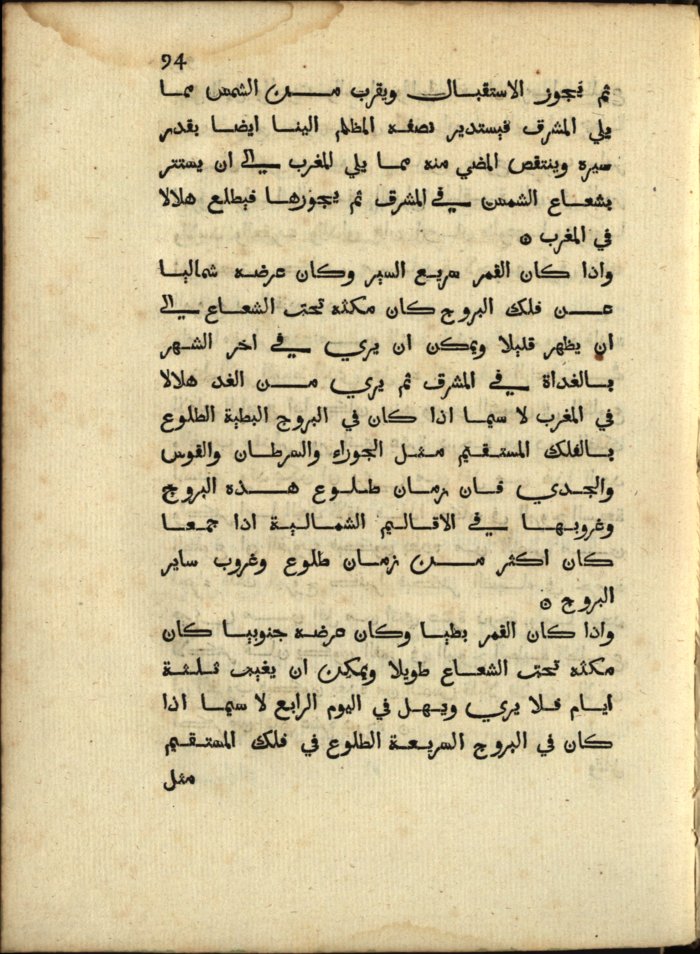 94
ثم يجوز الاستقبال ويقرب من الشمس مما
يلي المشرق فيستدير نصفه المظلم الينا ايضا بقدر
سيره وينتقص المضي منه مما يلي المغرب الي ان يستتر
بشعاع الشمس في المشرق ثم يجوزها فيطلع هلالا
في المغرب ه
واذا كان القمر سريع السير وكان عرضه شماليا
عن فلك البروج كان مكثه تحت الشعاع الي
ان يظهر قليلا ويمكن ان يري في اخر الشهر
بالغداة في المشرق ثم يري من الغد هلالا
في المغرب لا سيما اذا كان في البروج البطية الطلوع
بالفلك المستقيم مثل الجوزاء والسرطان والقوس
والجدي فان زمان طلوع هذه البروج
وغروبها في الاقاليم الشمالية اذا جمعا
كان اكثر من زمان طلوع وغروب ساير
البروج ه
واذا كان القمر بطيا وكان عرضه جنوبيا كان
مكثه تحت الشعاع طويلا ويمكن ان يغيب ثلثة
ايام فلا يري ويهل في اليوم الرابع لا سيما اذا
كان في البروج السريعة الطلوع في فلك المستقيم
مثل